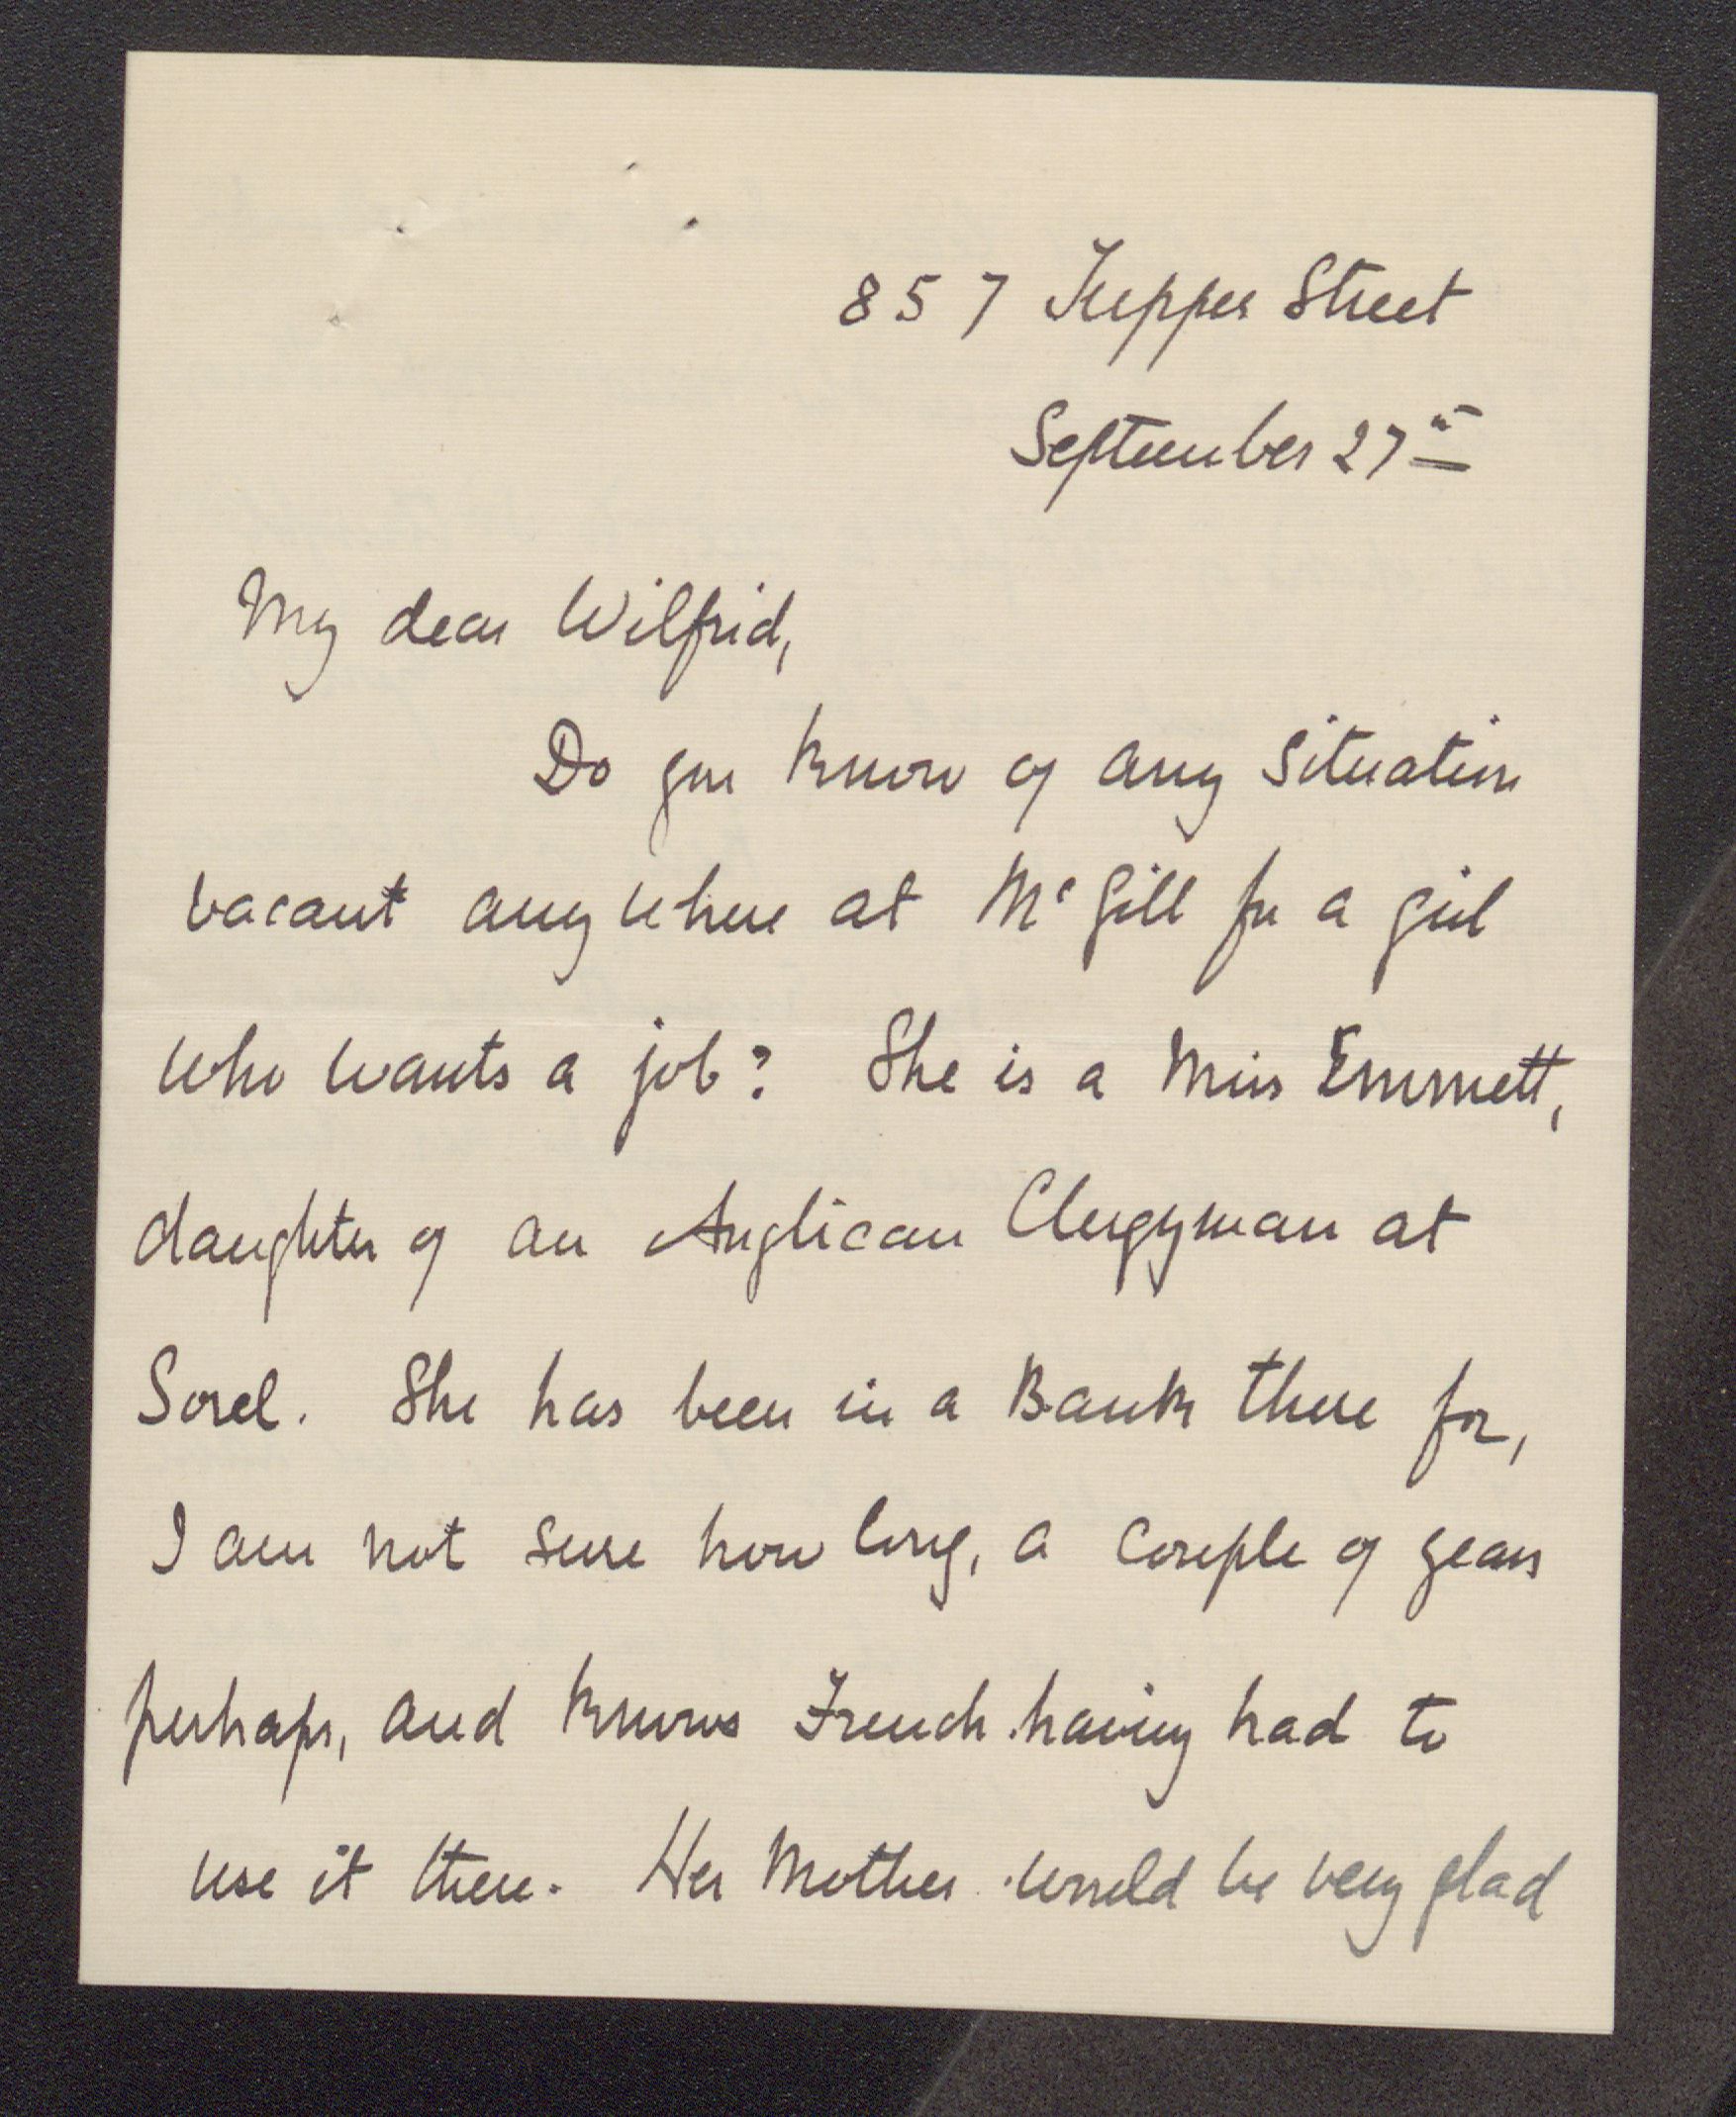 857 Tupper Street
September 27th
My dear Wilfrid,
Do you know of any situation
vacant anywhere at McGill for a girl
who wants a job? She is a Miss Emmett,
daughter of an Anglican Clergyman at
Sorel. She has been in a Bank there for,
I am not sure how long, a couple of years
perhaps, and knows French having had to
use it there. Her Mother would be very glad